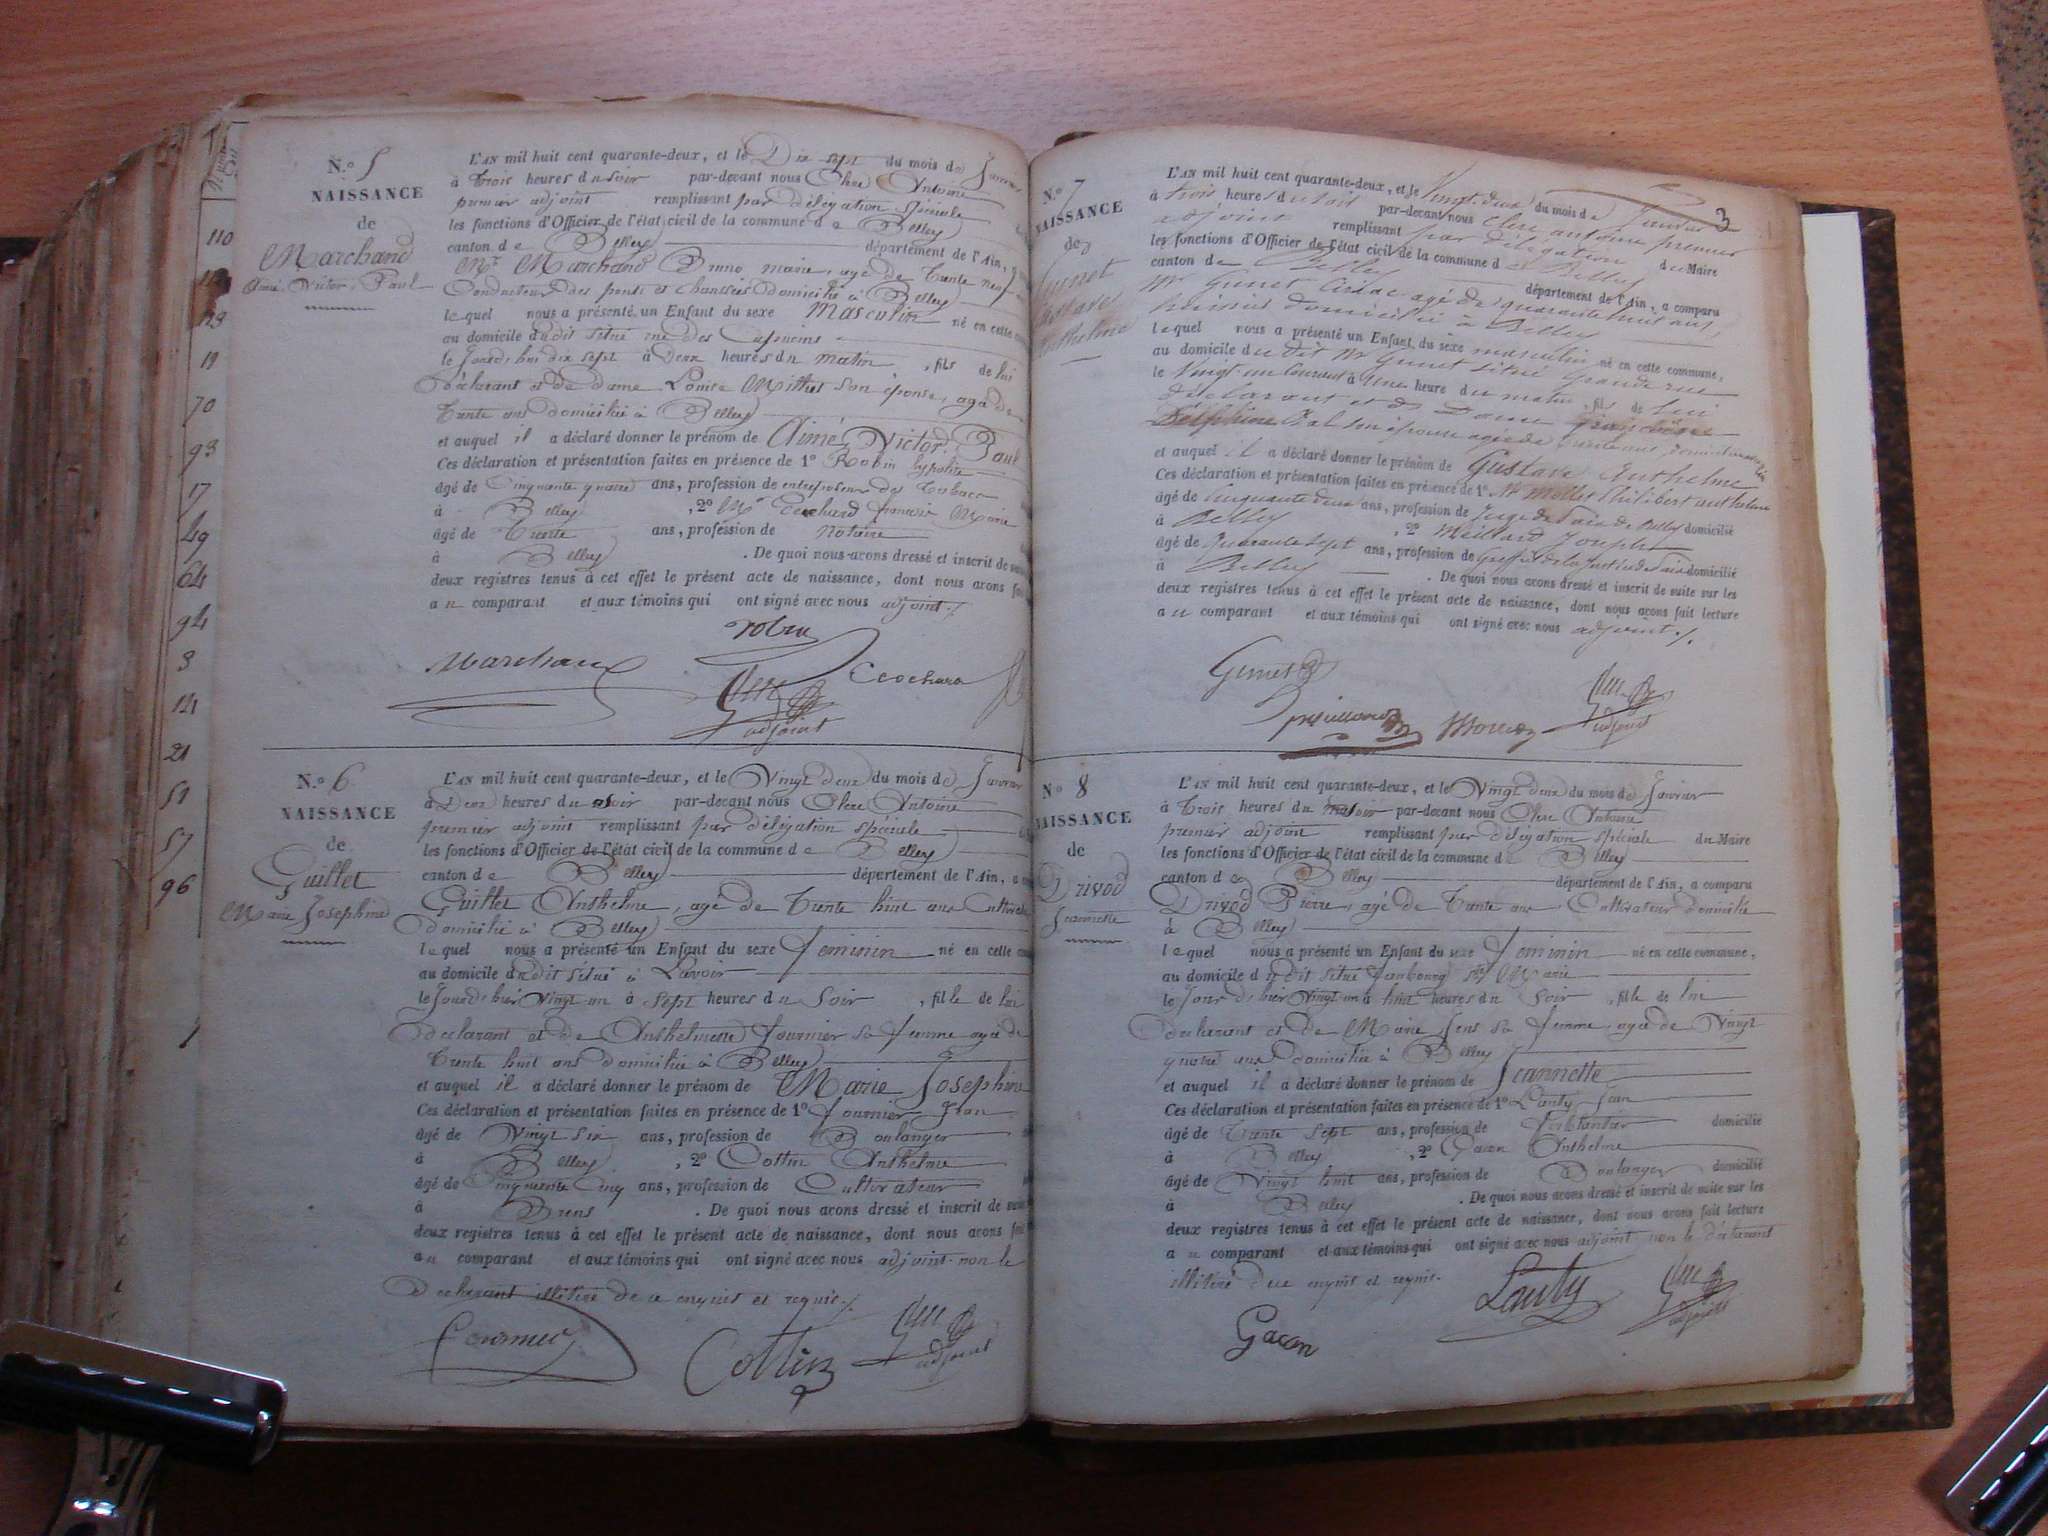 110
19
70
93
17
49
64
94
3
121
21
51
57
96
1
N.o 5
NAISSANCE
de
Marchand
Aimé Victor Paul
L'AN mil huit cent quarante-deux, et le Dix sept du mois de
à Trois heures du soir par-devant nous Clerc Antoine
premier adjoint remplissant par délégation spéciale
les fonctions d'Officier de l'état civil de la commune de Belley
canton de Belley département de l'Ain,
Mr Marchand Bruno marie, agé de Trente neuf
Conducteur des ponts et chaussées domicilié à Belley
lequel nous a présenté un Enfant du sexe Masculin né en cette
au domicile du dit situé rue des Capucins
le Jourd'hui dix sept à Deux heures du matin, fils de lui
Déclarant et de dame Louise Milliet son épouse, agée de
Trente ans domiciliée à Belley
et auquel il a déclaré donner le prénom de Aimé Victor Paul
Ces déclaration et présentation faites en présence de 1o Robin hypolite
âgé de Cinquante quatre ans, profession de entreposeur des Tabacs
à Belley, 2o Mr Cochard françois Marie
âgé de Trente ans, profession de Notaire
à Belley. De quoi nous avons dressé et inscrit de
deux registres tenus à cet effet le présent acte de naissance, dont nous avons
au comparant et aux témoins qui ont signé avec nous adjoint ./.
robin
Marchand
Cochard
Clerc
adjoint
N.o 6
NAISSANCE
de
Guillet
Marie Josephine
L'AN mil huit cent quarante-deux, et le Vingt deux du mois de Janvier
à Deux heures du soir par-devant nous Clerc Antoine
premier adjoint remplissant par délégation spéciale
les fonctions d'Officier de l'état civil de la commune de Belley
canton de Belley département de l'Ain, a
Guillet Anthelme, agé de Trente huit ans
domicilié à Belley
lequel nous a présenté un Enfant du sexe feminin né en cette
au domicile du dit situé à Lavoir
le Jourd'hier Vingt un à sept heures du Soir, fille de lui
declarant et de Anthelmette fournier sa femme agée de
Trente huit ans domiciliée à Belley
et auquel il a déclaré donner le prénom de Marie Josephine
Ces déclaration et présentation faites en présence de 1o fournier Jean
âgé de Vingt six ans, profession de Boulanger
à Belley, 2o Cottin Anthelme
âgé de Cinquante Cinq ans, profession de Cultivateur
à Brens. De quoi nous avons dressé et inscrit de
deux registres tenus à cet effet le présent acte de naissance, dont nous avons
au comparant et aux témoins qui ont signé avec nous adjoint non le
Declarant illitéré de ce enquis et requis ./.
Cottin
Clerc
adjoint
3
N.o 7
NAISSANCE
de
Gunet
Gustave
Anthelme
L'AN mil huit cent quarante-deux, et le Vingt deux du mois de Janvier
à trois heures du soir par-devant nous Clerc antoine premier
adjoint remplissant par délégation du Maire
les fonctions d'Officier de l'état civil de la commune de Belley
canton de Belley département de l'Ain, a comparu
Mr Gunet agé de quarante huit ans
huissier domicilié à Belley
lequel nous a présenté un Enfant du sexe masculin né en cette commune,
au domicile du dit Mr Gunet situé Grande rue
le Vingt un Courant à une heure du matin, fils de lui
déclarant et de Dame
son épouse agée de trente ans,
et auquel il a déclaré donner le prénom de Gustave Anthelme
Ces déclaration et présentation faites en présence de 1o Mr Mollet Philibert anthelme
âgé de Cinquante deux ans, profession de Juge de Paix de Belley domicilié
à Belley, 2o Meillard Joseph
âgé de Quarante sept ans, profession de Greffier de la justice de Paix domicilié
à Belley. De quoi nous avons dressé et inscrit de suite sur les
deux registres tenus à cet effet le présent acte de naissance, dont nous avons fait lecture
au comparant et aux témoins qui ont signé avec nous adjoint ./.
Gunet
Clerc
adjoint
N.o 8
NAISSANCE
de
Drivod
Jeannette
L'AN mil huit cent quarante-deux, et le Vingt deux du mois de Janvier
à Trois heures du soir par-devant nous Clerc Antoine
premier adjoint remplissant par délégation spéciale du Maire
les fonctions d'Officier de l'état civil de la commune de Belley
canton de Belley département de l'Ain, a comparu
Drivod Pierre, agé de Trente ans, Cultivateur domicilié
à Belley
lequel nous a présenté un Enfant du sexe feminin né en cette commune,
au domicile du dit situé faubourg Marie
le Jourd'hier Vingt un à huit heures du soir, fille de lui
declarant et de Marie Jens sa femme, agée de Vingt
quatre ans domiciliée à Belley
et auquel il a déclaré donner le prénom de Jeannette
Ces déclaration et présentation faites en présence de 1o Lauty Jean
âgé de Trente sept ans, profession de ferblantier domicilié
à Belley, 2o Gacon Anthelme
âgé de Vingt huit ans, profession de Boulanger domicilié
à Belley. De quoi nous avons dressé et inscrit de suite sur les
deux registres tenus à cet effet le présent acte de naissance, dont nous avons fait lecture
au comparant et aux témoins qui ont signé avec nous adjoint non le déclarant
illitéré de ce enquis et requis.
Lauty
Clerc
adjoint
Gacon